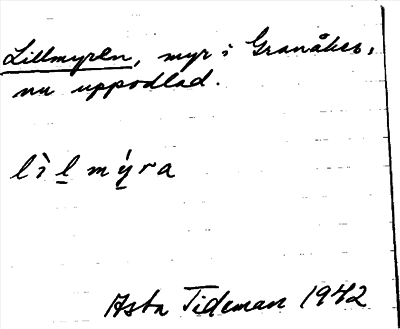 Lillmyren, myr i Granåker,
nu uppodlad.
lìl̲mý̲ra
Asta Tideman 1942